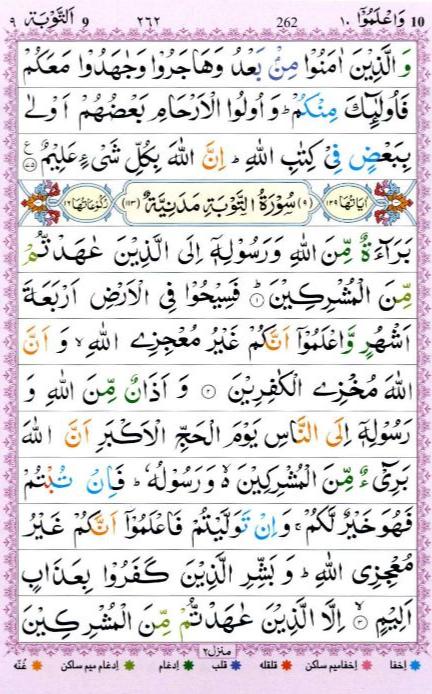 10 وَاعْلَمُوْٓا ١٠ 262 ٢٦٢ 9 اَلتَّوْبَة ٩
وَ الَّذِيْنَ اٰمَنُوْا مِنْۢ بَعْدُ وَهَاجَرُوْا وَجٰهَدُوْا مَعَكُمْ
فَاُولٰٓئِكَ مِنْكُمْ ؕ وَ اُولُوا الْاَرْحَامِ بَعْضُهُمْ اَوْلٰى
بِبَعْضٍ فِيْ كِتٰبِ اللّٰهِ ؕ اِنَّ اللّٰهَ بِكُلِّ شَيْءٍ عَلِيْمٌ ﴿٧٥﴾ ع
اٰيَاتُهَا ١٢٩ (٩) سُوْرَةُ التَّوْبَةِ مَدَنِيَّةٌ (١١٣) رُكُوْعَاتُهَا ١٦
بَرَآءَةٌ مِّنَ اللّٰهِ وَرَسُوْلِهٖۤ اِلَى الَّذِيْنَ عٰهَدْتُّمْ
مِّنَ الْمُشْرِكِيْنَ ؕ﴿١﴾ فَسِيْحُوْا فِي الْاَرْضِ اَرْبَعَةَ
اَشْهُرٍ وَّاعْلَمُوْۤا اَنَّكُمْ غَيْرُ مُعْجِزِي اللّٰهِ ۙ وَ اَنَّ
اللّٰهَ مُخْزِي الْكٰفِرِيْنَ ﴿٢﴾ وَ اَذَانٌ مِّنَ اللّٰهِ وَ
رَسُوْلِهٖۤ اِلَى النَّاسِ يَوْمَ الْحَجِّ الْاَكْبَرِ اَنَّ اللّٰهَ
بَرِيْٓءٌ مِّنَ الْمُشْرِكِيْنَ ۙ۬ وَرَسُوْلُهٗ ؕ فَاِنْ تُبْتُمْ
فَهُوَ خَيْرٌ لَّكُمْ ۚ وَاِنْ تَوَلَّيْتُمْ فَاعْلَمُوْۤا اَنَّكُمْ غَيْرُ
مُعْجِزِي اللّٰهِ ؕ وَ بَشِّرِ الَّذِيْنَ كَفَرُوْا بِعَذَابٍ
اَلِيْمٍ ۙ﴿٣﴾ اِلَّا الَّذِيْنَ عٰهَدْتُّمْ مِّنَ الْمُشْرِكِيْنَ
منزل٢
اخفا اخفامیم ساکن قلقله قلب ادغام ادغام میم ساکن غُنّه